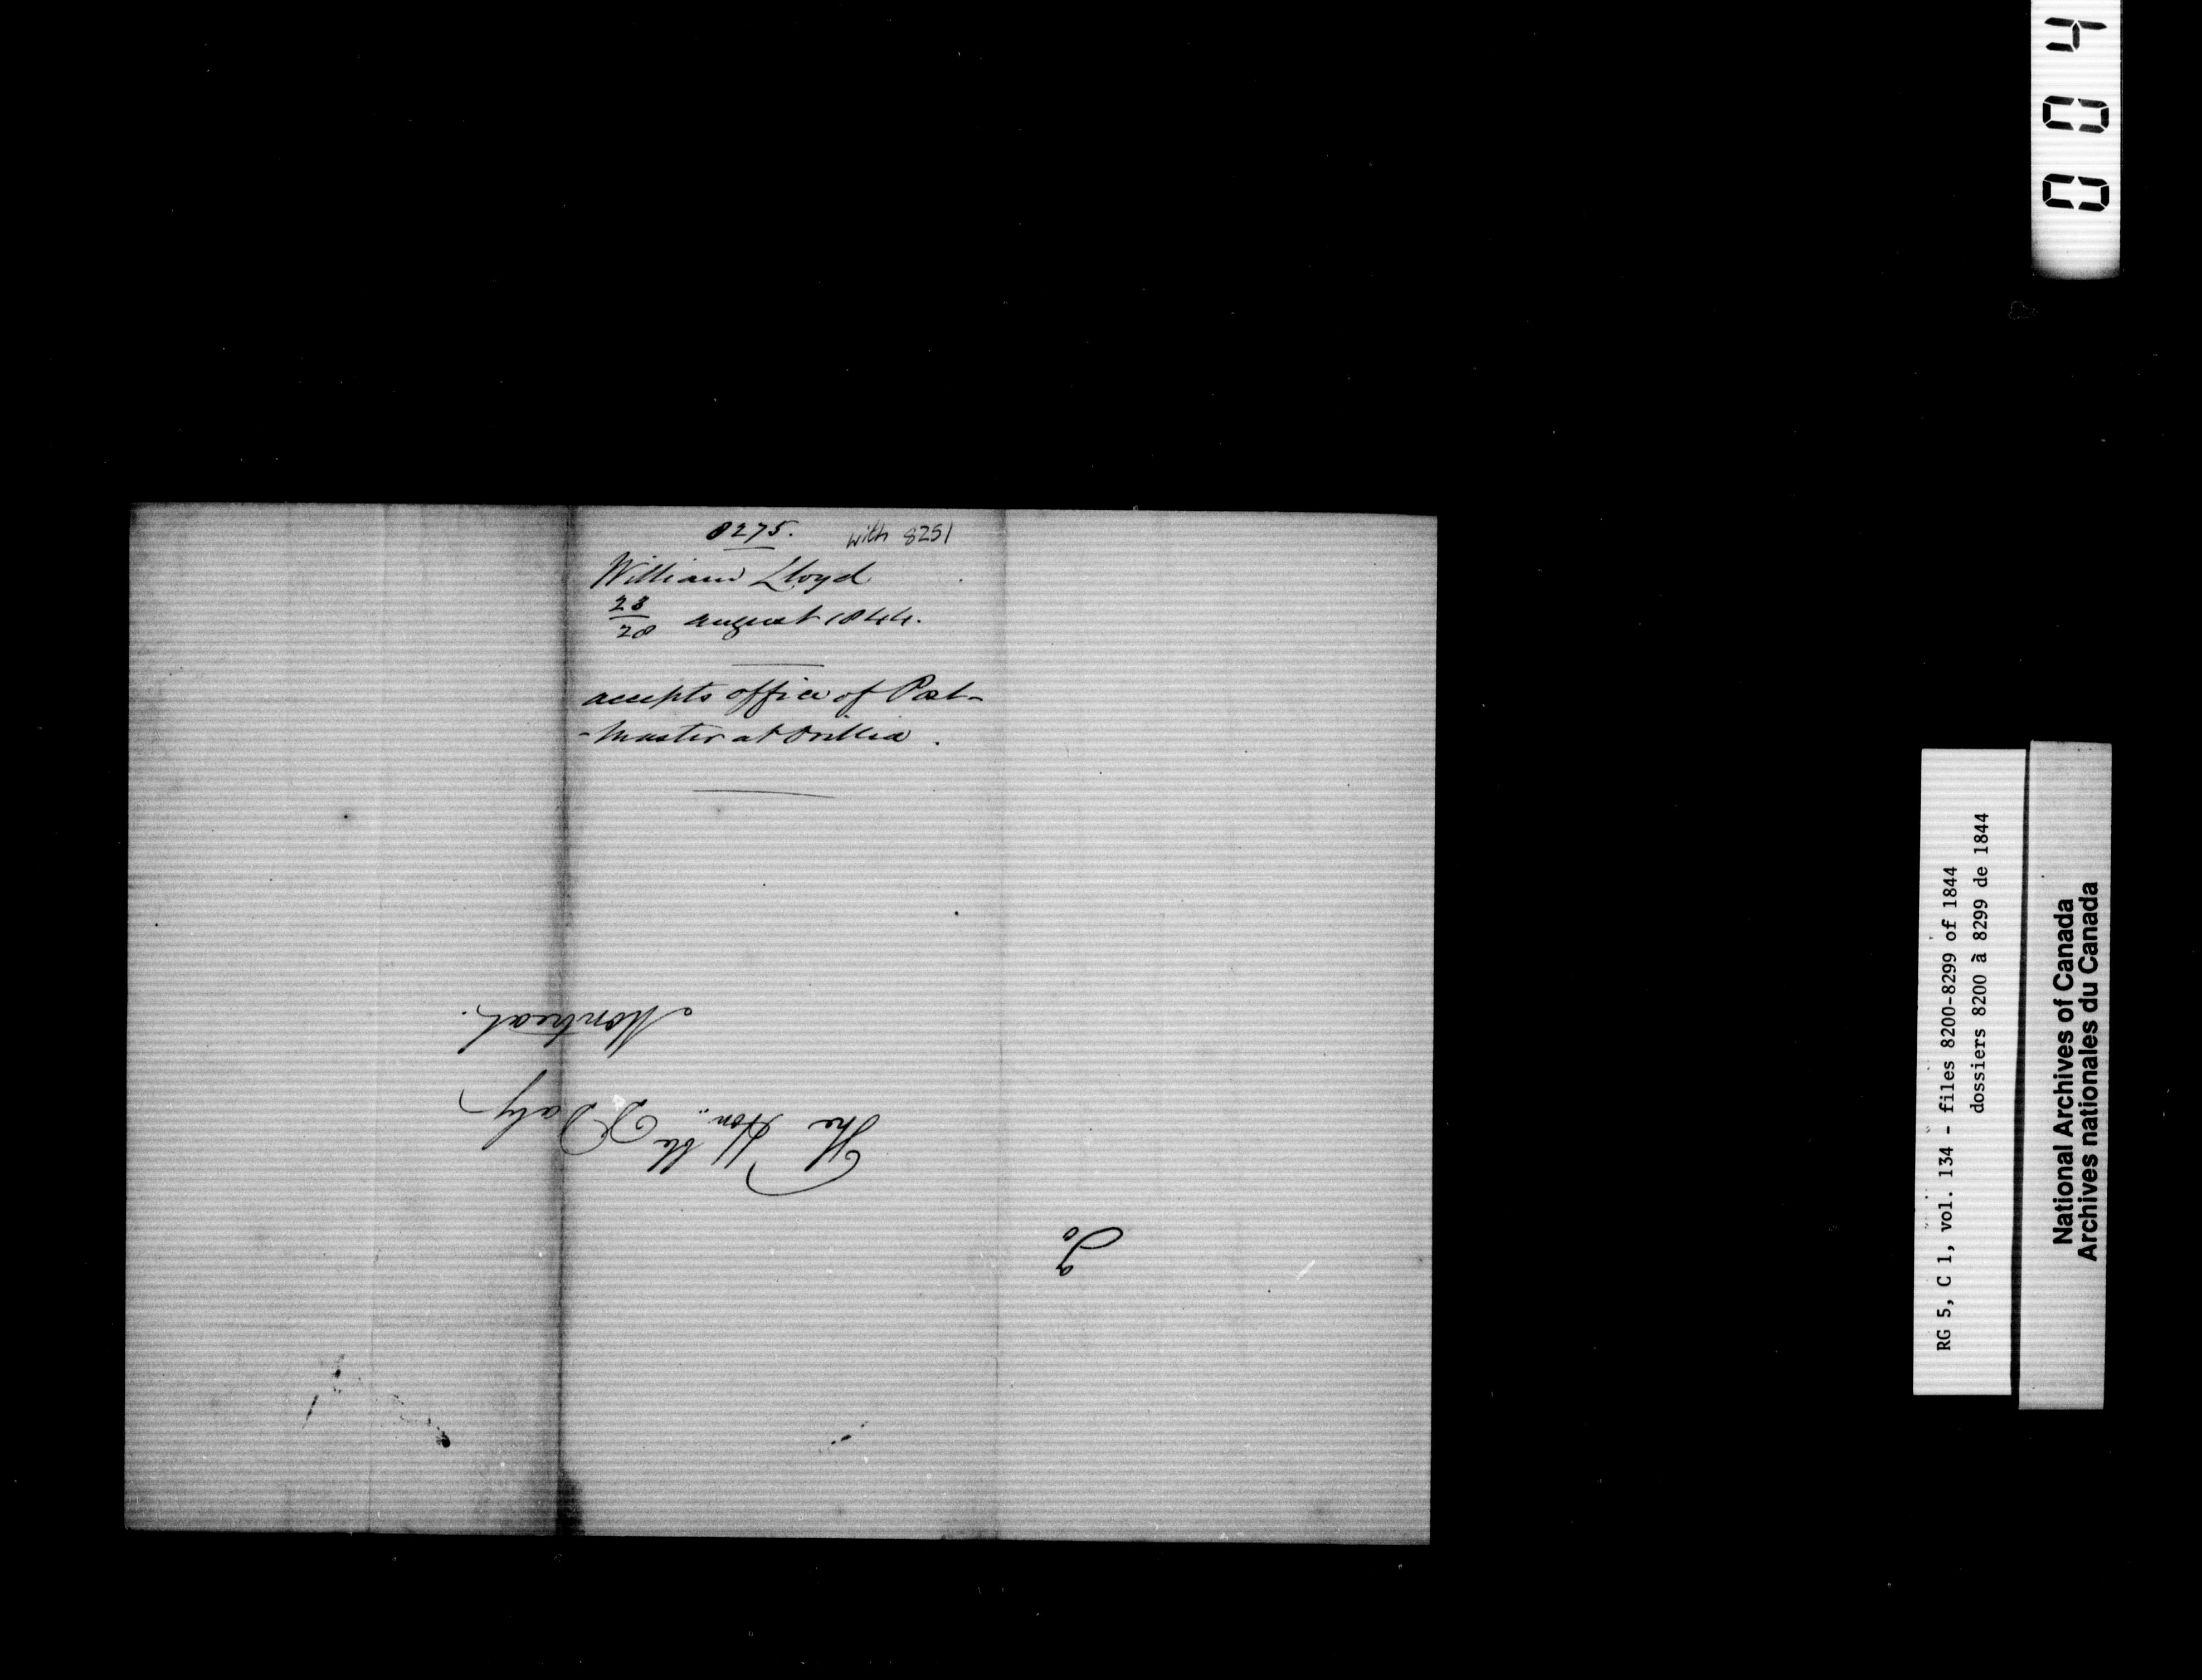 8275.
with 8251
William Lloyd
23/28 august 1844.
accepts office of Post-
-Master at Orillia.
To
The Hon:ble D Daly
Montreal.
RG 5, C 1, vol. 134 - files 8200-8299 of 1844
dossiers 8200 à 8299 de 1844
National Archives of Canada
Archives nationales du Canada
004